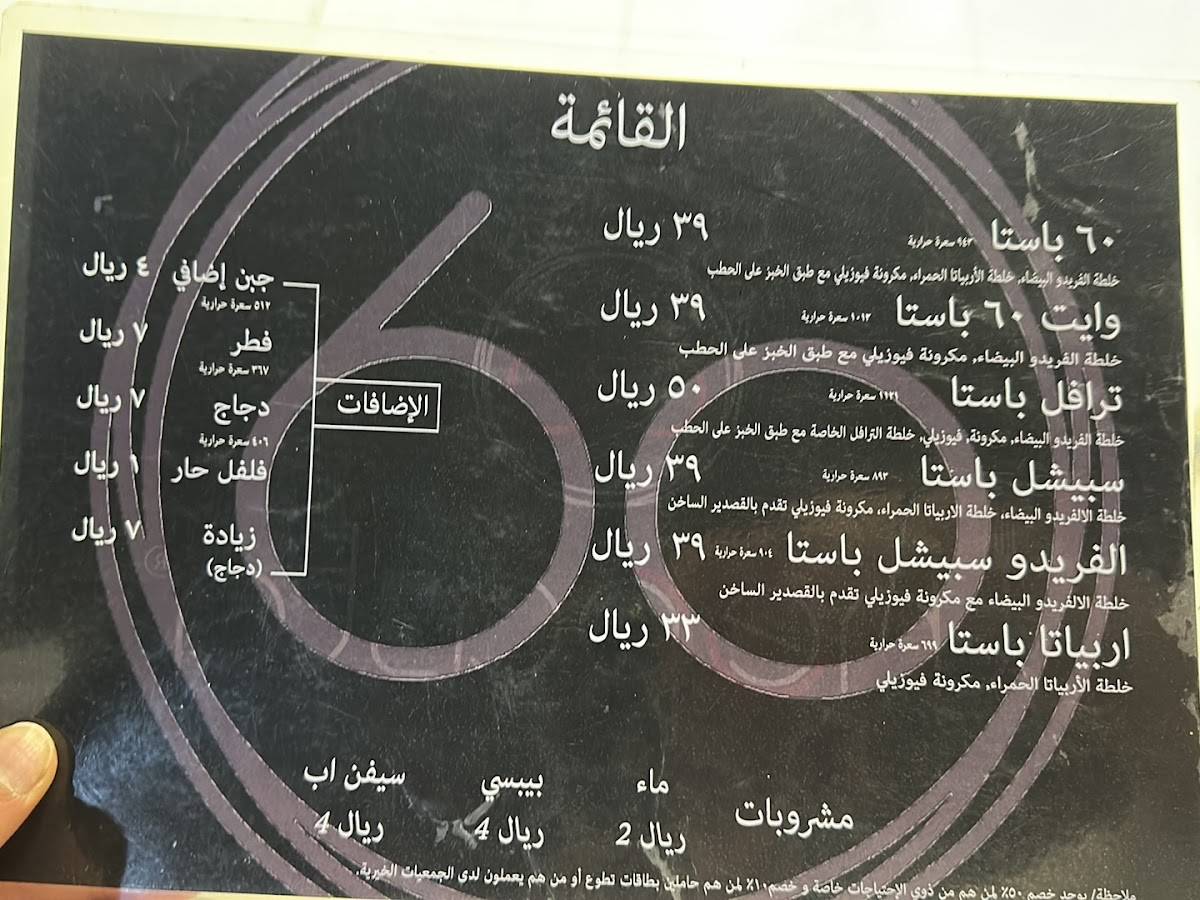 القائمة
٦٠ باستا ٩٤٣ سعرة حرارية ٣٩ ريال
خلطة الفريدو البيضاء, خلطة الأربياتا الحمراء, مكرونة فيوزيلي مع طبق الخبز على الحطب
وايت ٦٠ باستا ١٠١٣ سعرة حرارية ٣٩ ريال
خلطة الفريدو البيضاء, مكرونة فيوزيلي مع طبق الخبز على الحطب
ترافل باستا ١١٢١ سعرة حرارية ٥٠ ريال
خلطة الفريدو البيضاء, مكرونة, فيوزيلي, خلطة الترافل الخاصة مع طبق الخبز على الحطب
سبيشل باستا ٨٩٣ سعرة حرارية ٣٩ ريال
خلطة الالفريدو البيضاء, خلطة الاربياتا الحمراء, مكرونة فيوزيلي تقدم بالقصدير الساخن
الفريدو سبيشل باستا ٩٠٤ سعرة حرارية ٣٩ ريال
خلطة الالفريدو البيضاء مع مكرونة فيوزيلي تقدم بالقصدير الساخن
اربياتا باستا ٦٩٩ سعرة حرارية ٣٣ ريال
خلطة الأربياتا الحمراء, مكرونة فيوزيلي
الإضافات
جبن إضافي ٤ ريال
٥١٢ سعرة حرارية
فطر ٧ ريال
٣٦٧ سعرة حرارية
دجاج ٧ ريال
٤٠٦ سعرة حرارية
فلفل حار ١ ريال
زيادة ٧ ريال
(دجاج)
مشروبات
ماء بيبسي سيفن اب
2 ريال 4 ريال 4 ريال
ملاحظة/ يوجد خصم ٥٠٪ لمن هم من ذوي الإحتياجات خاصة و خصم١٠٪ لمن هم حاملين بطاقات تطوع أو من هم يعملون لدى الجمعيات الخيرية.